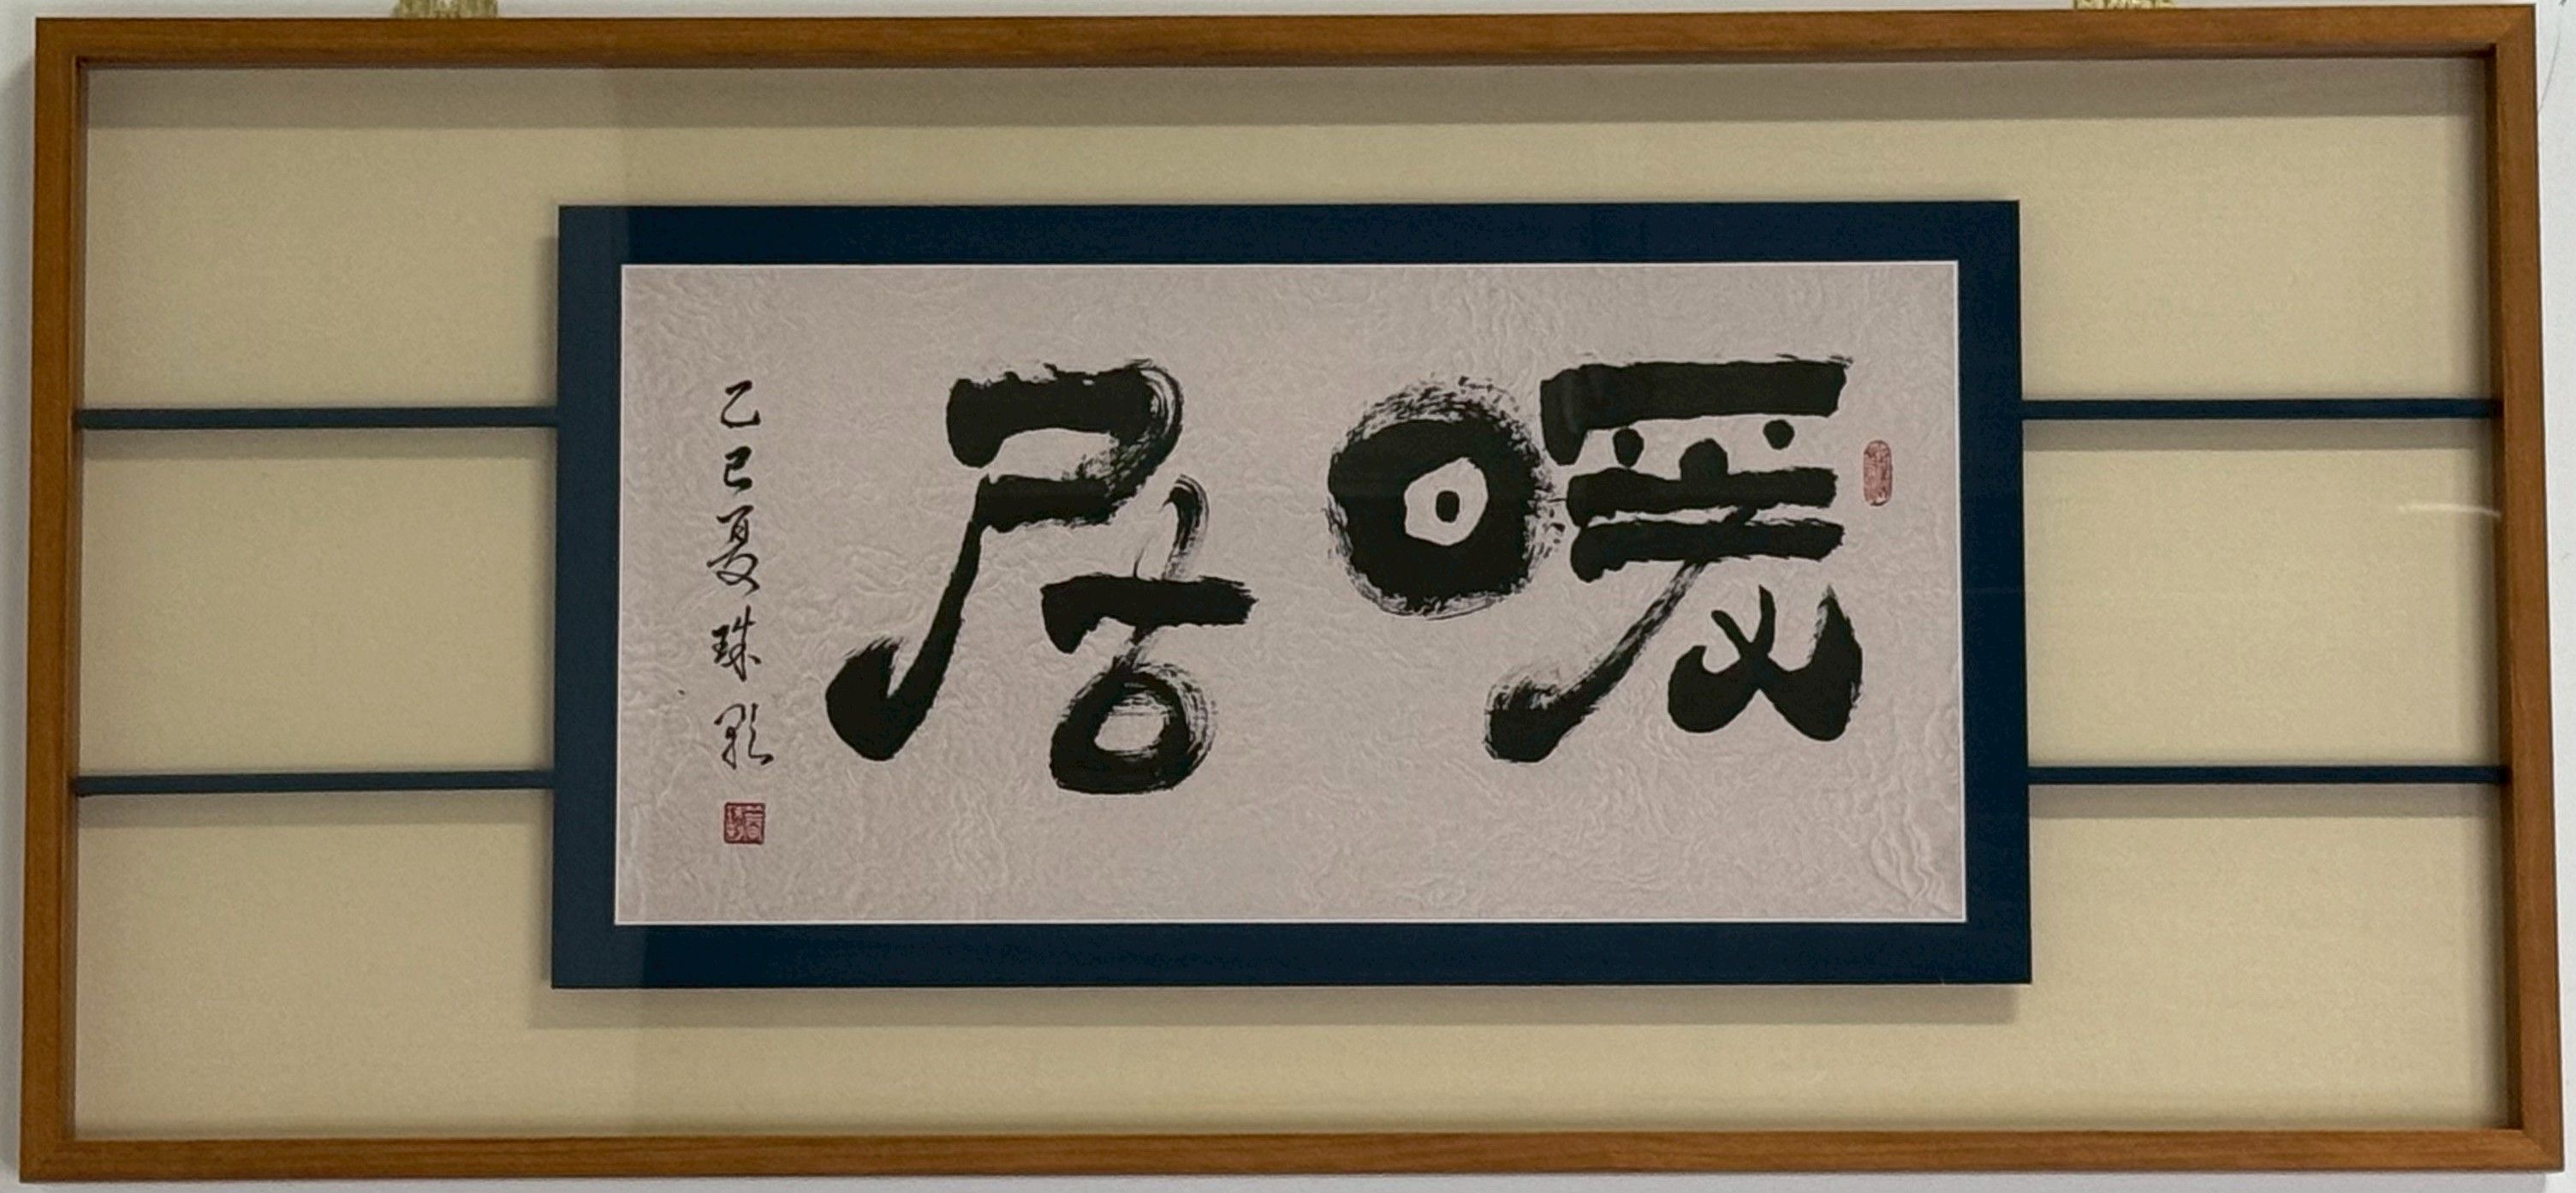 暖居
乙巳夏 珠